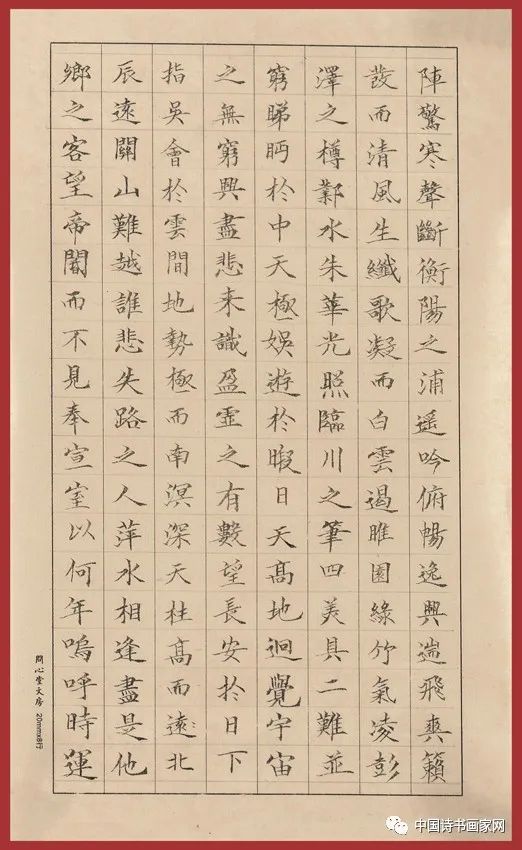 陣驚寒聲斷衡陽之浦遥吟俯暢逸興遄飛爽籟
發而清風生纖歌凝而白雲遏睢園綠竹氣凌彭
澤之樽鄴水朱華光照臨川之筆四美具二難並
窮睇眄於中天極娛遊於暇日天高地迥覺宇宙
之無窮興盡悲来識盈虛之有數望長安於日下
指吳會於雲間地勢極而南溟深天柱高而遠北
辰遠關山難越誰悲失路之人萍水相逢盡是他
鄉之客望帝閽而不見奉宣室以何年嗚呼時運
問心堂文房 20mmx8行
中国诗书画家网